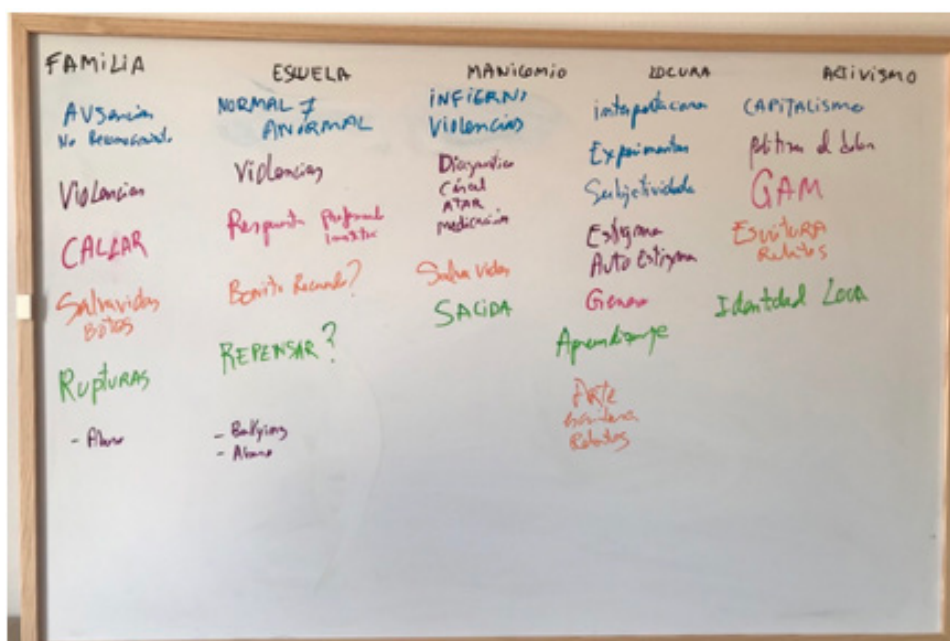 FAMILIA
AUSENCIAS
Violencias
CALLAR
Salvavidas
Botes
RUPTURAS
- Abuso
ESCUELA
NORMAL Y
ANORMAL
Violencias
Respuesta
REPENSAR?
- Bullying
- Abuso
MANICOMIO
INFIERNO
Violencias
Diagnostico
Cárcel
ATAR
medicación
Salvavidas
SALIDA
LOCURA
Experimentar
Subjetividad
Estigma
Auto Estigma
Genero
Aprendizaje
Arte
escritura
Relatos
ACTIVISMO
CAPITALISMO
politizar el dolor
GAM
ESCRITURA
Relatos
Identidad Loca